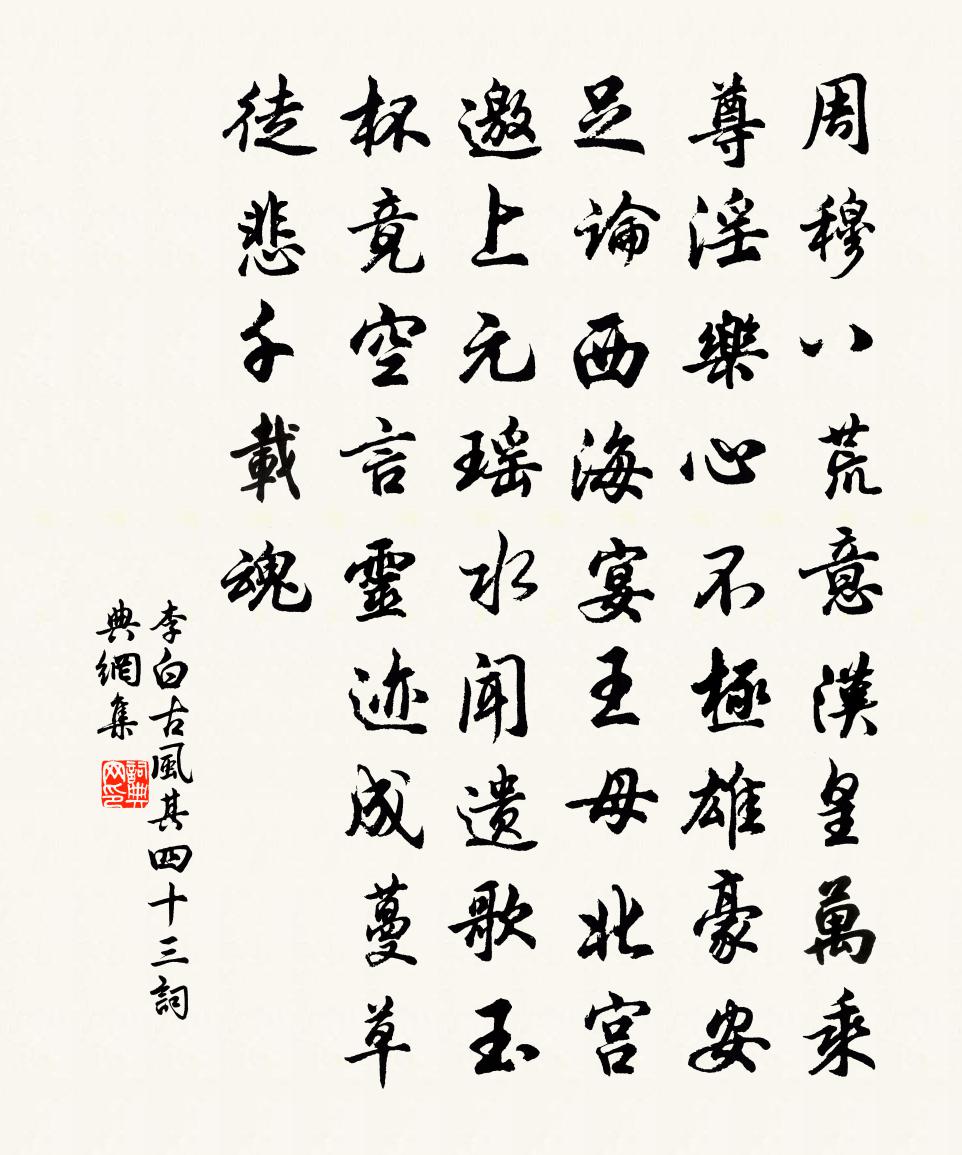 周穆八荒意漢皇萬乘
尊淫樂心不極雄豪安
足論西海宴王母北宮
邀上元瑶水闻遺歌玉
杯竟空言靈迹成蔓草
徒悲千載魂
李白古風其四十三詞
典網集
詞典
网印